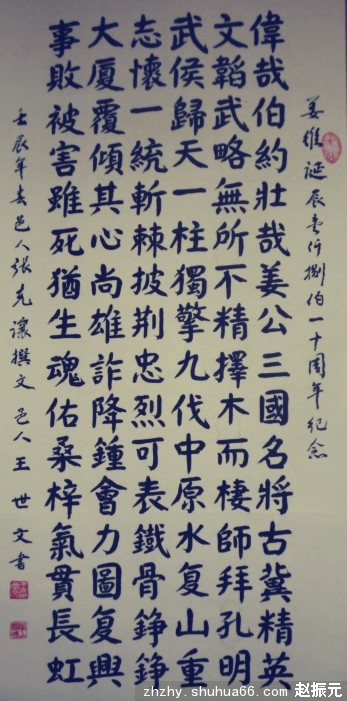 姜維誕辰壹仟捌佰一十周年纪念
偉哉伯約壯哉姜公三國名將古冀精英
文韜武略無所不精擇木而棲師拜孔明
武侯歸天一柱獨擎九伐中原水复山重
志懷一統斬棘披荆忠烈可表鐵骨錚錚
大厦覆傾其心尚雄詐降鍾會力圖复興
事敗被害雖死猶生魂佑桑梓氣貫長虹
壬辰年春邑人張克讓撰文邑人王世文書
zhzhy.shuhua66.com 赵振元